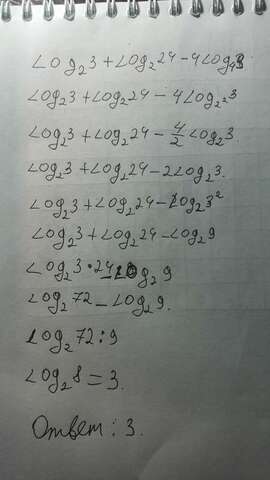 Log₂3 + Log₂24 - 4Log₄3
Log₂3 + Log₂24 - 4Log₂²3
Log₂3 + Log₂24 - 4/2 Log₂3.
Log₂3 + Log₂24 - 2Log₂3.
Log₂3 + Log₂24 - Log₂3²
Log₂3 + Log₂24 - Log₂9
Log₂3·24 - Log₂9
Log₂72 - Log₂9.
Log₂72:9
Log₂8 = 3.
Ответ: 3.